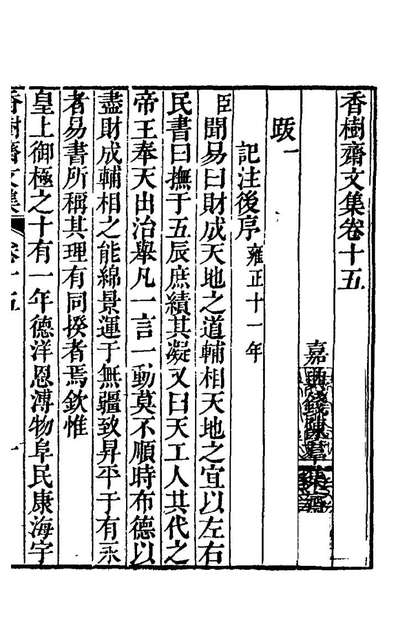 香樹齋文集卷十五
嘉興錢陳羣
跋一
記注後序 雍正十一年
臣聞易曰財成天地之道輔相天地之宜以左右
民書曰撫于五辰庶績其凝又曰天工人其代之
帝王奉天出治舉凡一言一動莫不順時布德以
盡財成輔相之能綿景運于無疆致昇平于有永
者易書所稱其理有同揆者焉欽惟
皇上御極之十有一年德洋恩溥物阜民康海宇
香樹齋文集 卷十五 一